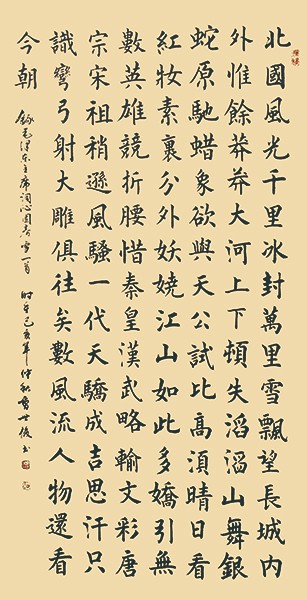 北國風光千里冰封萬里雪飄望長城内
外惟餘莽莽大河上下頓失滔滔山舞銀
蛇原馳蜡象欲與天公試比高須晴日看
紅妝素裹分外妖嬈江山如此多嬌引無
數英雄競折腰惜秦皇漢武略輸文彩唐
宗宋祖稍遜風騷一代天驕成吉思汗只
識彎弓射大雕俱往矣數風流人物還看
今朝
錄毛泽东主席词沁園春雪一首 时在己亥年仲秋